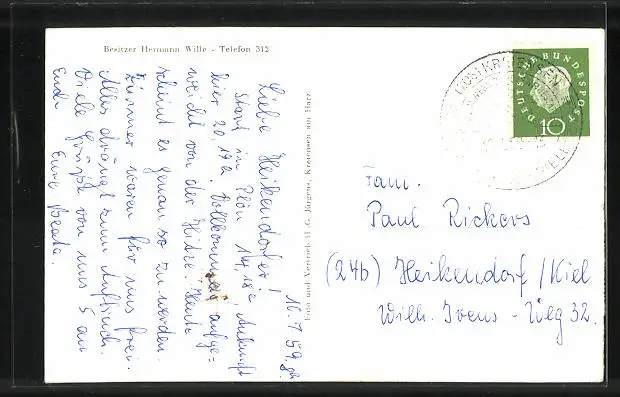 Besitzer Hermann Wille - Telefon 312
10.7.59.
Liebe Heikendorfer!
Start in Plön 14,18 Ankunft
hier 20, Vollkommen aufge-
weicht von der Hitze. Heute
scheint es genau so zu werden.
Zimmer waren für uns frei.
Alles drängt zum Aufbruch.
Viele Grüße von uns 5 an
Euch Eure Beate.
Foto und Vertrieb H. G. Jürgens, Kreensen am Harz
DEUTSCHE BUNDESPOST
10
Fam.
Paul Rickers
(24b) Heikendorf/Kiel
Wilh. Ivens-Weg 32.